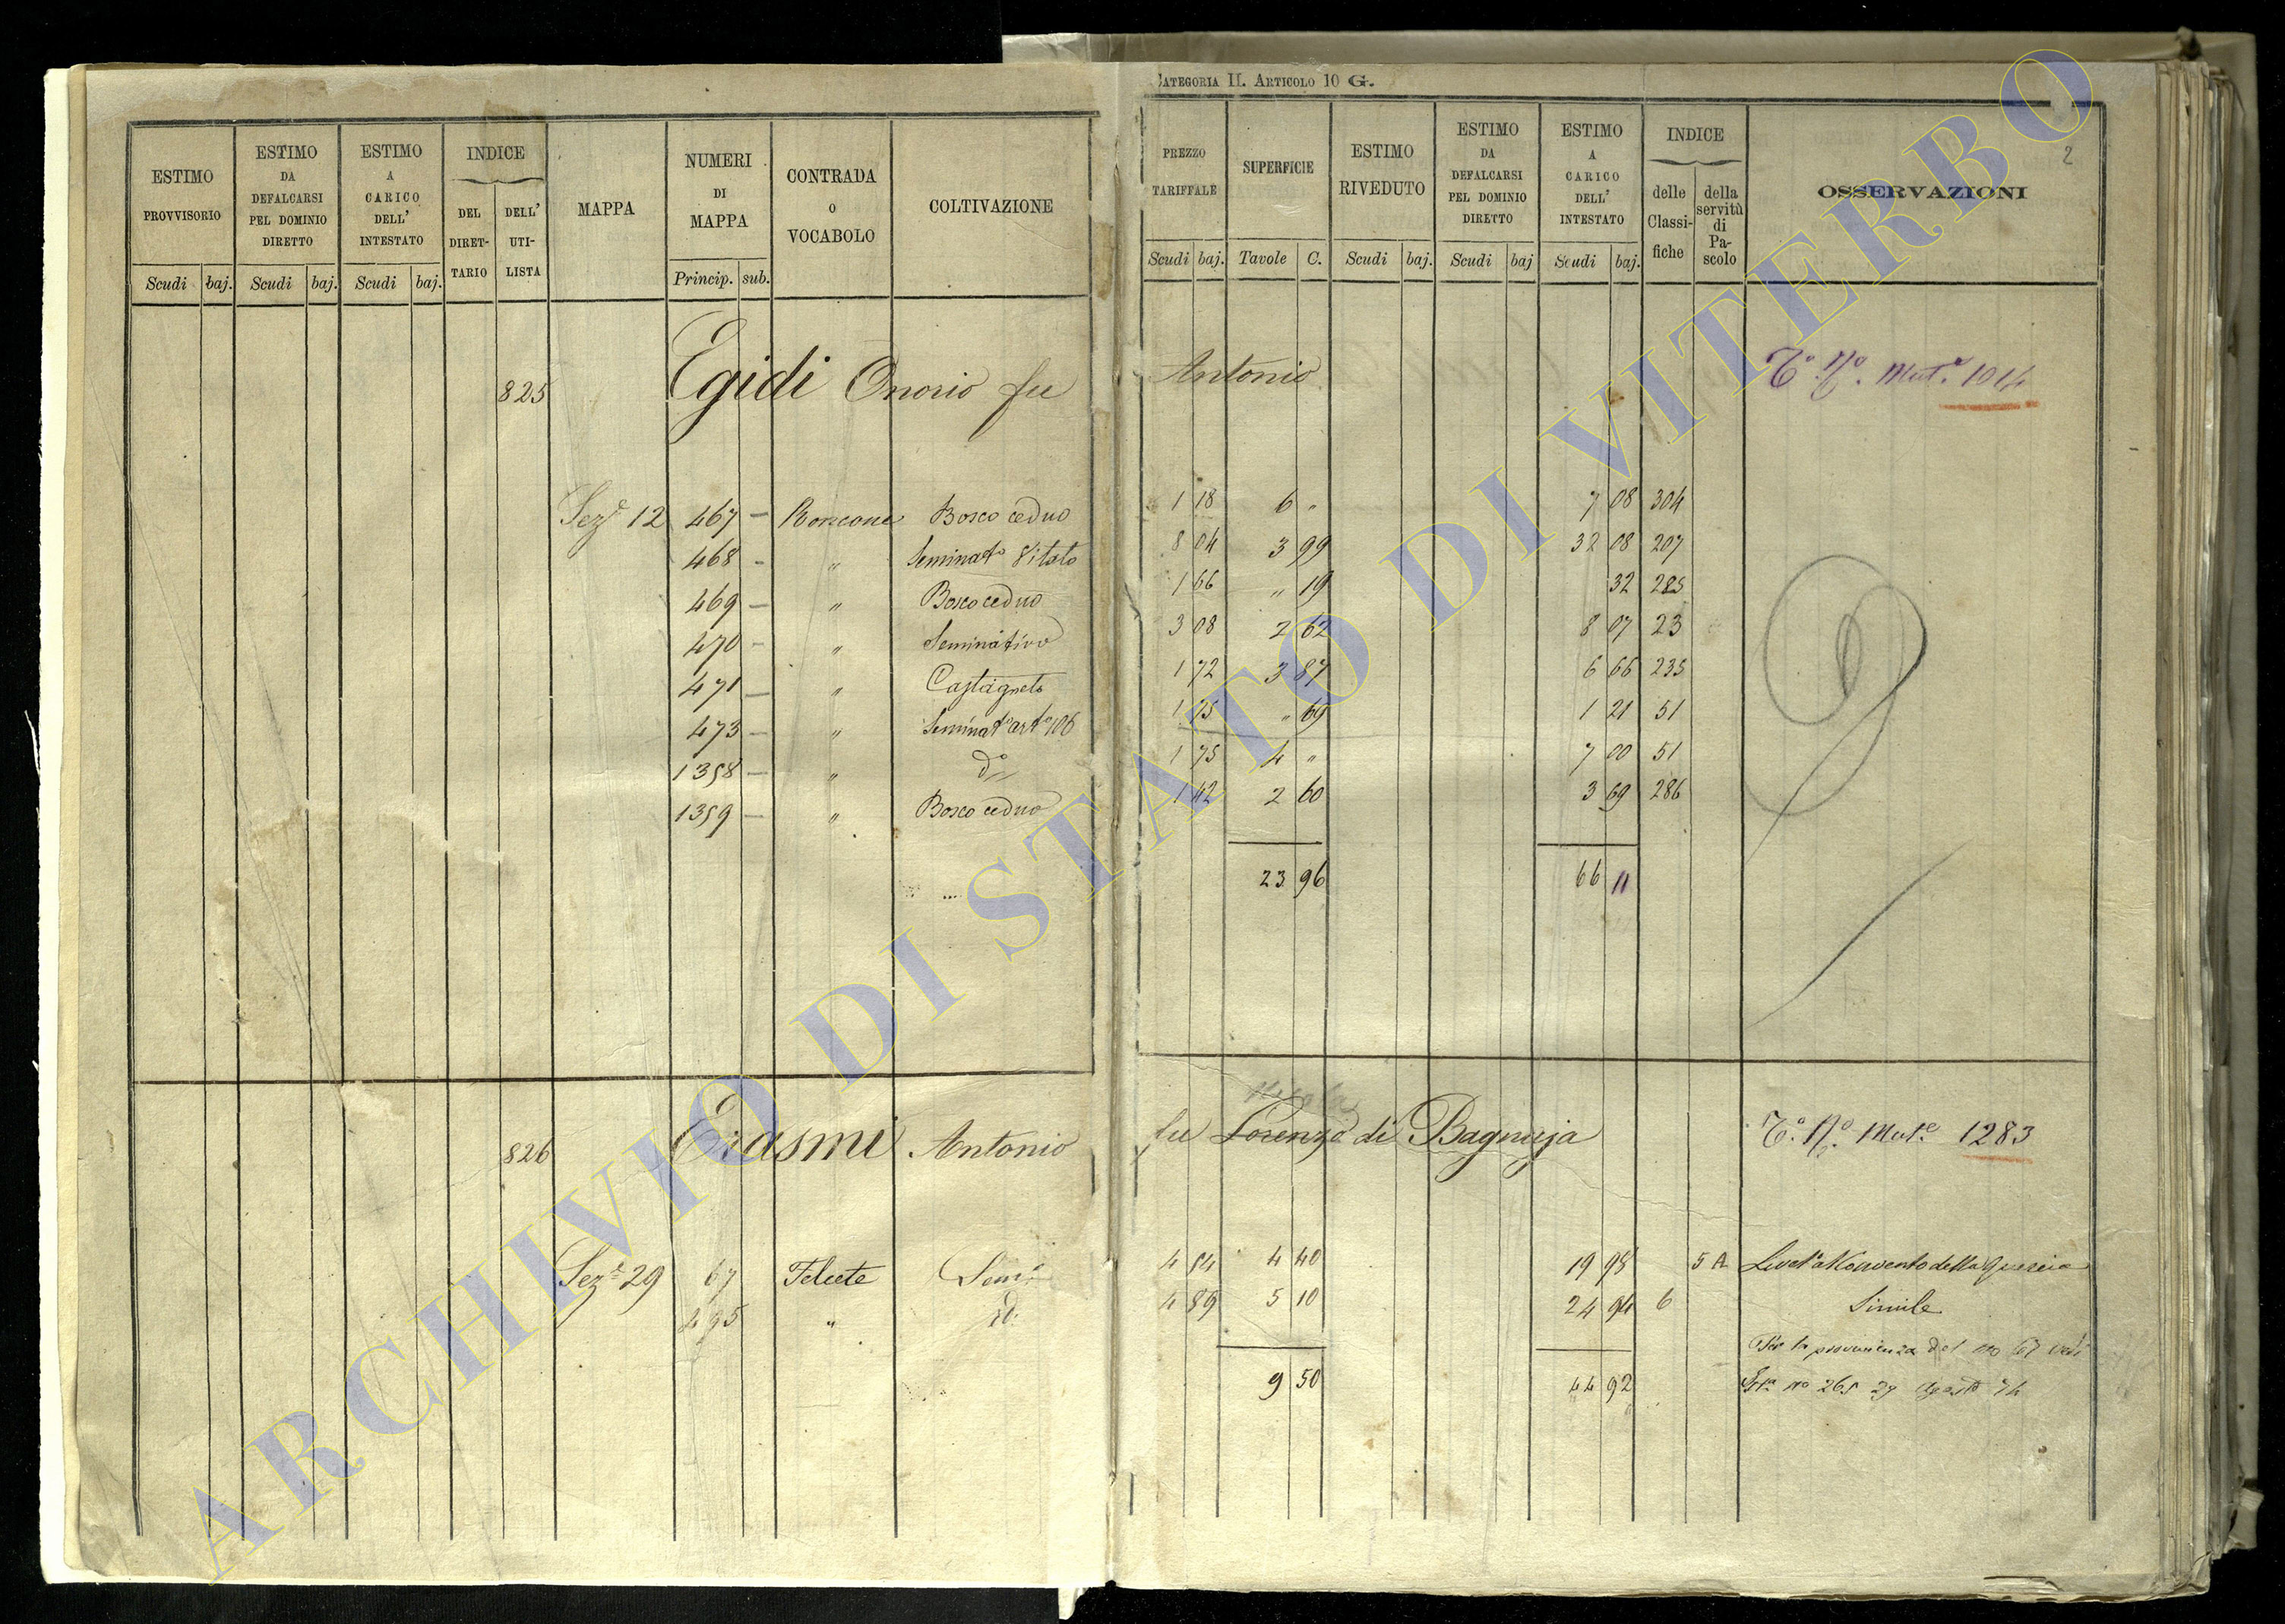 CATEGORIA II. ARTICOLO 10 G.
2
ESTIMO PROVVISORIO Scudi baj.
ESTIMO DA DEFALCARSI PEL DOMINIO DIRETTO Scudi baj.
ESTIMO A CARICO DELL' INTESTATO Scudi baj.
INDICE DEL DIRETTARIO DELL' UTILISTA
MAPPA
NUMERI DI MAPPA Princip. sub.
CONTRADA O VOCABOLO
COLTIVAZIONE
PREZZO TARIFFALE Scudi baj.
SUPERFICIE Tavole C.
ESTIMO RIVEDUTO Scudi baj.
ESTIMO DA DEFALCARSI PEL DOMINIO DIRETTO Scudi baj
ESTIMO A CARICO DELL' INTESTATO Scudi baj.
INDICE delle Classifiche della servitù di Pascolo
OSSERVAZIONI
825 Egidi Onorio fu Antonio T.º N.º Mut.e 1014
Sez.e 12 467 — Roncone Bosco ceduo 1 18 6 " 7 08 304
468 - " Seminat.o Vitato 8 04 3 99 32 08 207
469 — " Bosco ceduo 1 66 " 19 32 285
470 - " Seminativo 3 08 2 62 8 07 23
471 — " Castagneto 1 72 3 87 6 66 235
473 — " Seminat.o art.o 106 1 75 " 69 1 21 51
1358 — " d.o 1 75 4 " 7 00 51
1359 — " Bosco ceduo 1 42 2 60 3 69 286
23 96 66 11
826 Erasmi Antonio fu Lorenzo di Bagnaja T.º N.º Mut.e 1283
Sez.e 29 67 Telcete Sem.o 4 54 4 40 19 98 5 A Livell.o al Convento della Quercia
495 " id. 4 89 5 10 24 94 6 Simile
Per la provenienza del no 67 vedi
9 50 44 92 no 265 29 Agosto 74
ARCHIVIO DI STATO DI VITERBO